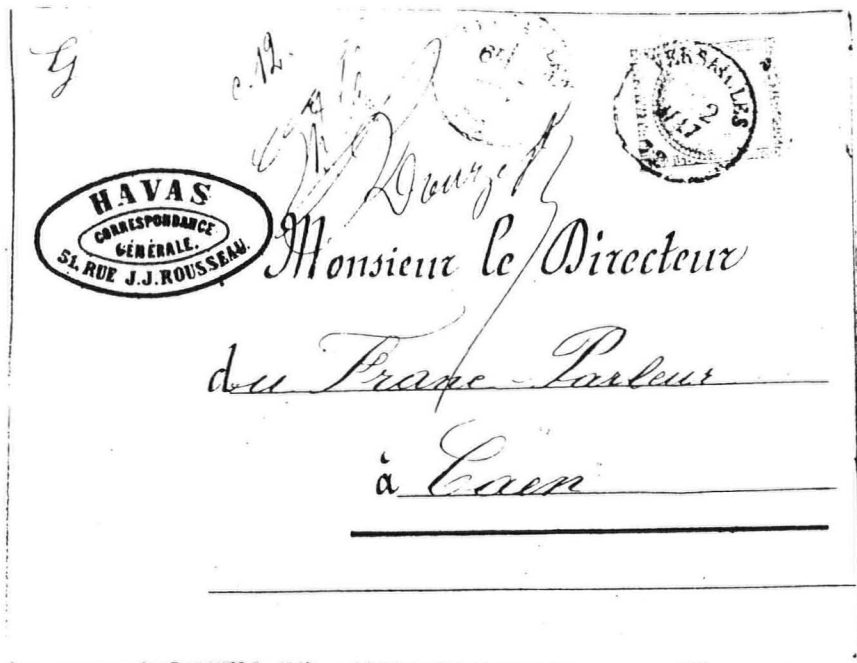 c. 12.
VERSAILLES
2
HAVAS
CORRESPONDANCE
GÉNÉRALE.
51. RUE J.J. ROUSSEAU.
Monsieur le Directeur
du Franc-Parleur
à Caen